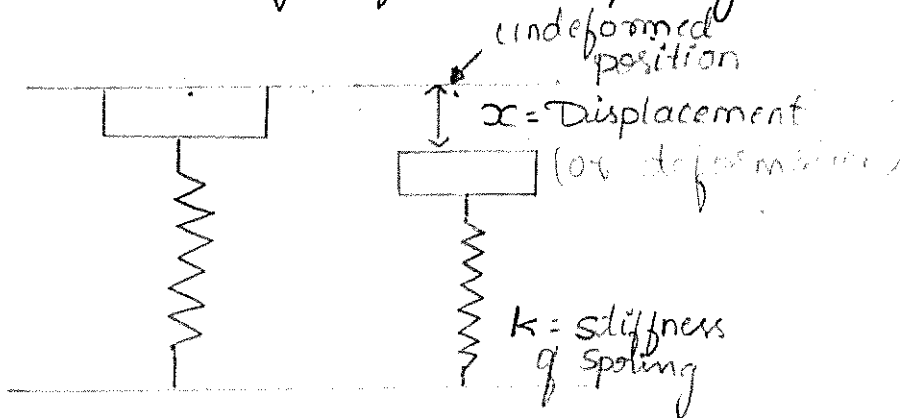 undeformed
position
x = Displacement
(or deformation)
k = stiffness
of spring